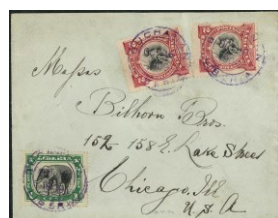 Messrs
Bilhorn Bros.
152-158 E. Lake Street
Chicago, Ill
U.S.A